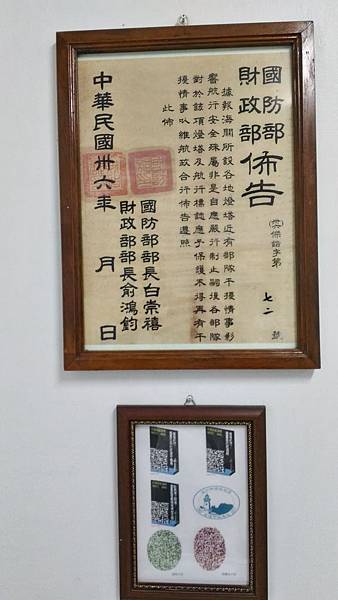 國防部
財政部 佈告
據報海關所設各地燈塔近有部隊干擾情事影
響航行安全殊屬非是自應嚴行制止嗣後各部隊
對於該項燈塔及航行標誌應予保護不得再有干
擾情事以維航政合行佈告遵照
此佈
國防部部長白崇禧
財政部部長俞鴻鈞
中華民國卅六年 月 日
字第
七二
號